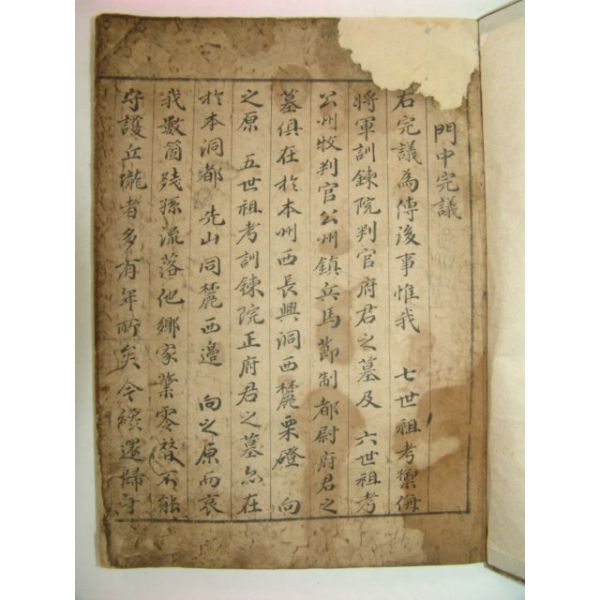 門中完議
右完議為傳後事惟我 七世祖考禦侮
將軍訓鍊院判官府君之墓及 六世祖考
公州牧判官公州鎮兵馬節制都尉府君之
墓俱在於本州西長興洞西麓栗磴 向
之原 五世祖考訓鍊院正府君之墓亦在
於本洞都 先山同麓西邊 向之原而哀
我數箇殘孫流落他鄉家業零替不能
守護丘壠者多有年所矣今纔還歸守